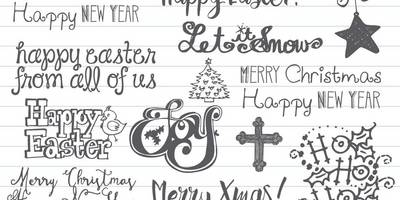 Happy Easter!
Happy NEW YEAR
Let it Snow
happy easter
from all of us
MERRY Christmas
Happy NEW YEAR
Happy
Easter
Joy
HO
HO
HO
Merry Christmas
Merry Xmas!